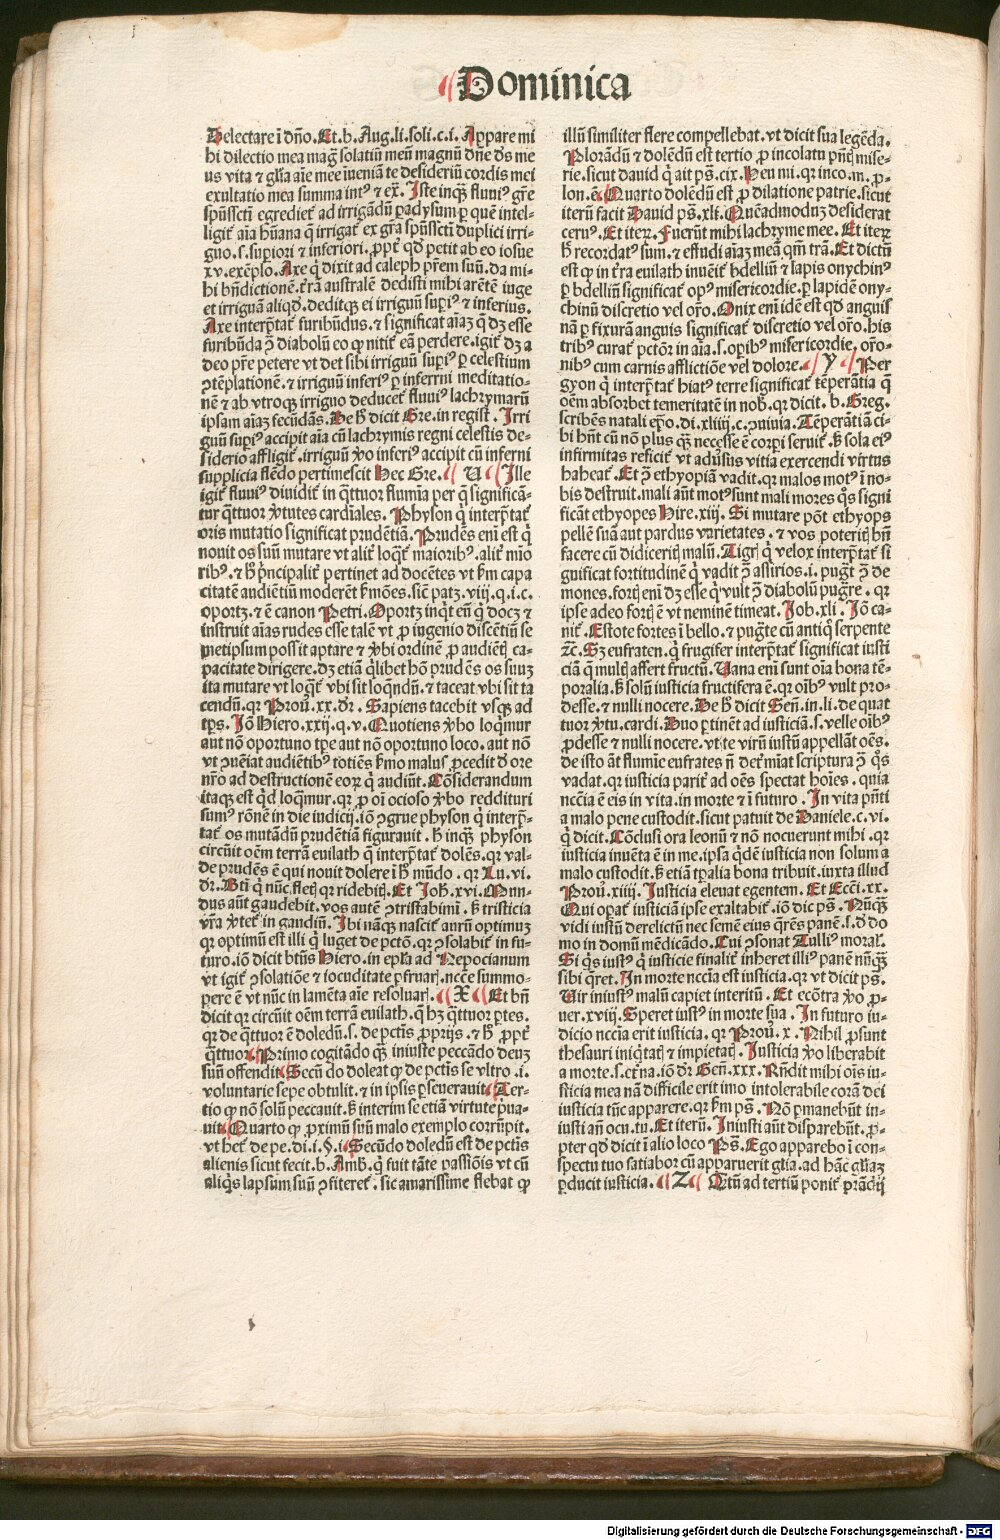 Dominica
Delectare ī dño. Et. b. Aug. li. soli. c. i. Appare mi
hi dilectio mea mag̃ solatiū meū magnū dñe ds̃ me
us vita ⁊ gl̃ia aīe mee īueniā te desideriū cordis mei
exultatio mea summa intꝰ ⁊ ex̃. Iste inqꝫ fluuiꝰ gr̃e
sp̃ussctī egredit᷑ ad irrigãdū ꝑadysum ꝑ quē intel-
ligit᷑ aīa hũana q̃ irrigat᷑ ex gr̃a sp̃ussctī duplici irri-
guo. s. supiori ⁊ inferiori. ꝓpt᷑ qd̃ petit ab eo iosue
xv. exēplo. Axe q̃ dixit ad caleph pr̃em suū. da mi-
hi bñdictionē. t̃rã australē dedisti mihi arētē iuge
et irriguã aliqd̃. deditqꝫ ei irriguū sup̃iꝰ ⁊ inferius.
Axe interp̃tat᷑ furibũdus. ⁊ significat aīaꝫ q̃ dꝫ esse
furibũda ꝯ̃ diabolū eo ꝙ nitit᷑ eã perdere. igit᷑ dꝫ a
deo pr̃e petere vt det sibi irriguū sup̃iꝰ ꝑ celestium
ꝯtēplationē. ⁊ irriguū inferiꝰ ꝑ inferni meditatio-
nē ⁊ ab vtroqꝫ irriguo deducet᷑ fluuiꝰ lachrymarū
ipsam aīaꝫ fecũdãs. De h̃ dicit Gre. in regist᷑. Irri
guū sup̃iꝰ accipit aīa cū lachrymis regni celestis de-
siderio affligit᷑. irriguū ꝟo inferiꝰ accipit cū inferni
supplicia flēdo pertimescit hec Gre. U Ille
igit᷑ fluuiꝰ diuidit᷑ in q̃ttuor flumīa per q̃ significã-
tur q̃ttuor ꝟtutes cardīales. Physon q̃ interp̃tat᷑
oris mutatio significat prudētiã. Prudēs enī est q̃
nouit os suū mutare vt alit᷑ loq̃t᷑ maioribꝰ. alit᷑ mīo
ribꝰ. ⁊ h̃ p̃ncipalit᷑ pertinet ad docētes vt ẜm capa
citatē audiētiū moderēt ẜmões. sic̃ patꝫ. viij. q. i. c.
oportꝫ. ⁊ ē canon Petri. Oportꝫ inq̃t eñ q̃ docꝫ ⁊
instruit aīas rudes esse talē vt ꝓ ingenio discētiū se
metipsum possit aptare ⁊ ꝟbi ordinē ꝓ audiētiꝫ ca-
pacitate dirigere. dꝫ etiã q̃libet hõ prudēs os suuꝫ
ita mutare vt loq̃t᷑ vbi sit loq̃ndū. ⁊ taceat vbi sit ta
cendū. qꝛ Prou̾. xx. dr̃. Sapiens tacebit vsqꝫ ad
tp̃s. Iõ Hiero. xxij. q. v. Quotiens ꝟbo loq̃mur
aut nõ oportuno tp̃e aut nõ oportuno loco. aut nõ
vt ꝯueniat audiētibꝰ totiēs ẜmo malus procedit d̃ ore
nr̃o ad destructionē eoꝝ q̃ audiūt. Cõsiderandum
itaqꝫ est q̃d loq̃mur. qꝛ ꝓ oī ocioso ꝟbo reddituri
sumꝰ rõnē in die iudicij. iõ ꝯgrue physon q̃ interp̃-
tat᷑ os mutãdū prudētiã figurauit. h̃ inqꝫ physon
circuit oēm terrã euilath q̃ interp̃tat᷑ dolēs. qꝛ val-
de prudēs ē qui nouit dolere ī h̃ mũdo. qꝛ Lu. vi.
dr̃. Bt̃i q̃ nūc fletꝭ qꝛ ridebitꝭ. Et Joh̃. xvi. Mun-
dus aūt gaudebit. vos autē ꝯtristabimī. ẜ tristicia
vr̃a ꝟtet᷑ in gaudiū. Ibi nãqꝫ nascit᷑ aurū optimuꝫ
qꝛ optimū est illi q̃ luget de pctõ. qꝛ ꝯsolabit᷑ in fu-
turo. iõ dicit bt̃us Hiero. in epl̃a ad Nepocianum
vt igit᷑ ꝯsolatiõe ⁊ iocuditate ꝑfruarꝭ. nccē summo-
pere ē vt nūc in lamēta aīe resoluarꝭ. X Et bñ
dicit qꝛ circuit oēm terrã euilath. q̃ hꝫ q̃ttuor ꝑtes.
qꝛ de q̃ttuor ē doledū. s. de pctīs ꝓprijs. ⁊ h̃ ꝓpt᷑
q̃ttuor. Primo cogitãdo qꝫ iniuste peccãdo deuꝫ
suū offendit. Secū do doleat ꝙ de pctīs se vltro. i.
voluntarie sepe obtulit. ⁊ in ipsis ꝑseuerauit. Ter-
tio ꝙ nõ solū peccauit. ẜ interim se etiã virtute p̃ua-
uit. Quarto ꝙ ꝓximū suū malo exemplo corrūpit.
vt hct᷑ de pe. di. i. §. i. Secũdo doledū est de pctīs
alienis sicut fecit. b. Amb. q̃ fuit tãte passiõis vt cū
aliq̃s lapsum suū ꝯfiteret᷑. sic amarissime flebat ꝙ
illū similiter flere compellebat. vt dicit sua legēda.
Plorãdū ⁊ dolēdū est tertio ꝓ incolatu pñtꝭ mise-
rie. sicut dauid q̃ ait ps̃. cix. Heu mi. qꝛ inco. m. ꝓ-
lon. ē. Quarto dolēdū est ꝓ dilatione patrie. sicut
iterū facit Dauid ps̃. xli. Quēadmoduꝫ desiderat
ceruꝰ. Et iteꝝ. Fuerūt mihi lachryme mee. Et iteꝝ
h̃ recordatꝰ sum. ⁊ effudi aīaꝫ meã qm̃ trã. Et dictū
est ꝙ in t̃ra euilath inuēit᷑ bdelliū ⁊ lapis onychinꝰ
ꝑ bdelliū significat᷑ opꝰ misericordie. ꝑ lapidē ony-
chinū discretio vel or̃o. Onix enī idē est qd̃ anguis
nã ꝑ fixurã anguis significat᷑ discretio vel or̃o. his
tribꝰ curat᷑ pctõr in aīa. s. oꝑibꝰ misericordie, or̃o-
nibꝰ cum carnis afflictiõe vel dolore. Y Per
gyon q̃ interp̃tat᷑ hiatꝰ terre significat᷑ tēperãtia q̃
oēm absorbet temeritatē in nob̃. qꝛ dicit. b. Greg.
scribēs natali ep̃o. di. xliiij. c. ꝯuiuia. Tēperãtiã ci-
bi hñt cū nõ plus qꝫ necesse ē corꝑi seruit᷑. ẜ sola eiꝰ
infirmitas reficit᷑ vt adũsus vitia exercendi virtus
habeat᷑. Et ꝯ̃ ethyopiã vadit. qꝛ malos motꝰ ī no-
bis destruit. mali aūt motꝰ sunt mali mores q̃s signi
ficãt ethyopes Hire. xiij. Si mutare põt ethyops
pellē suã aut pardus varietates. ⁊ vos poteritꝭ bñ
facere cū didiceritꝭ malū. Tigrꝭ q̃ velox interp̃tat᷑ si
guificat fortitudinē q̃ vadit ꝯ̃ assirios. i. pug̃t ꝯ̃ de
mones. fortꝭ enī dꝫ esse q̃ vult ꝯ̃ diabolū pug̃re. qꝛ
ipse adeo fortꝭ ē vt neminē timeat. Job. xli. Iõ ca-
nit᷑. Estote fortes ī bello. ⁊ pug̃te cū antiq̃ serpente
⁊c̃. Sꝫ eufraten. q̃ frugifer interp̃tat᷑ significat iusti
ciã q̃ multꝭ affert fructū. Uana enī sunt oīa bona tē-
poralia. ẜ solū iusticia fructifera ē. qꝛ oībꝰ vult pro-
desse. ⁊ nulli nocere. De h̃ dicit Señ. in. li. de quat
tuor ꝟtu. cardi. Duo ꝑtinēt ad iusticiã. s. velle oībꝰ
ꝓdesse ⁊ nulli nocere. vt te virū iustū appellãt oēs.
de isto ãt flumīe eufrates ñ det̃mīat scriptura ꝯ̃ q̃s
vadat. qꝛ iusticia parit᷑ ad oēs spectat hoīes. quia
nccīa ē eis in vita. in morte ⁊ ī futuro. In vita pñti
a malo pene custodit. sicut patuit de Daniele. c. vi.
q̃ dicit. Cõclusi ora leonū ⁊ nõ nocuerunt mihi. qꝛ
iusticia inuēta ē in me. ipsa q̃dē iusticia non solum a
malo custodit. ẜ etiã tꝑalia bona tribuit. iuxta illud
Prou̾. xiiij. Iusticia eleuat egentem. Et Ecc̃i. xx.
Qui opat᷑ iusticiã ipse exaltabit᷑. iõ dic ps̃. Nūqꝫ
vidi iustū derelictū nec semē eius q̃rēs panē. s. d̃ do
mo in domū mēdicãdo. Cui ꝯsonat Tulliꝰ moral᷑.
Si q̃s iustꝰ q̃ iusticie finalit᷑ inheret illiꝰ panē nūqꝫ
sibi q̃ret. In morte nccīa est iusticia. qꝛ vt dicit ps̃.
Uir iniustꝰ malū capiet interitū. Et ecõtra ꝟo ꝓ-
uer. xviij. Speret iustꝰ in morte sua. In futuro iu-
dicio nccīa erit iusticia. qꝛ Prou̾. x. Nihil ꝓsunt
thesauri iniq̃tatꝭ ⁊ impietatꝭ. Iusticia ꝟo liberabit
a morte. s. et̃na. iõ dr̃ Geñ. xxx. Rñdit mihi oīs iu-
sticia mea nã difficile erit imo intolerabile corã dei
iusticia tūc apparere. qꝛ ẜm ps̃. Nõ ꝑmanebūt in-
iusti añ ocu. tu. Et iterū. Iniusti aūt disparebūt. ꝓ-
pter qd̃ dicit ī alio loco Ps̃. Ego apparebo ī con-
spectu tuo satiabor cū apparuerit glīa. ad hãc glīaꝫ
ꝑducit iusticia. Z Qtū ad tertiū ponit᷑ prãdij
Digitalisierung gefördert durch die Deutsche Forschungsgemeinschaft - DFG